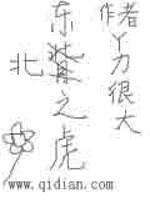 作者丫力很大
东北之虎
www.qidian.com